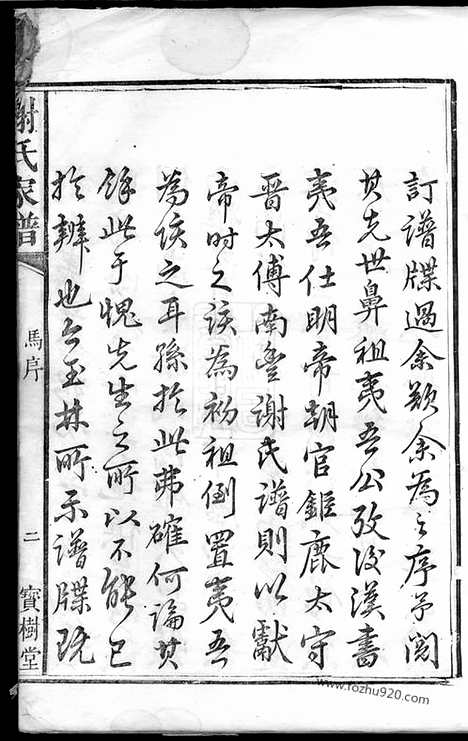 訂譜牒過余欵余為之序予閱
其先世鼻祖夷吾公攷後漢書
夷吾仕明帝朝官鉅鹿太守
晉太傅南豐謝氏譜則以獻
帝時之該為初祖倒置夷吾
為該之耳孫於此弗確何論其
餘此于愧先生之所以不能已
於辨也今玉林所示譜牒既
謝氏家譜
馬序
二
寶樹堂
www.fozhu920.com